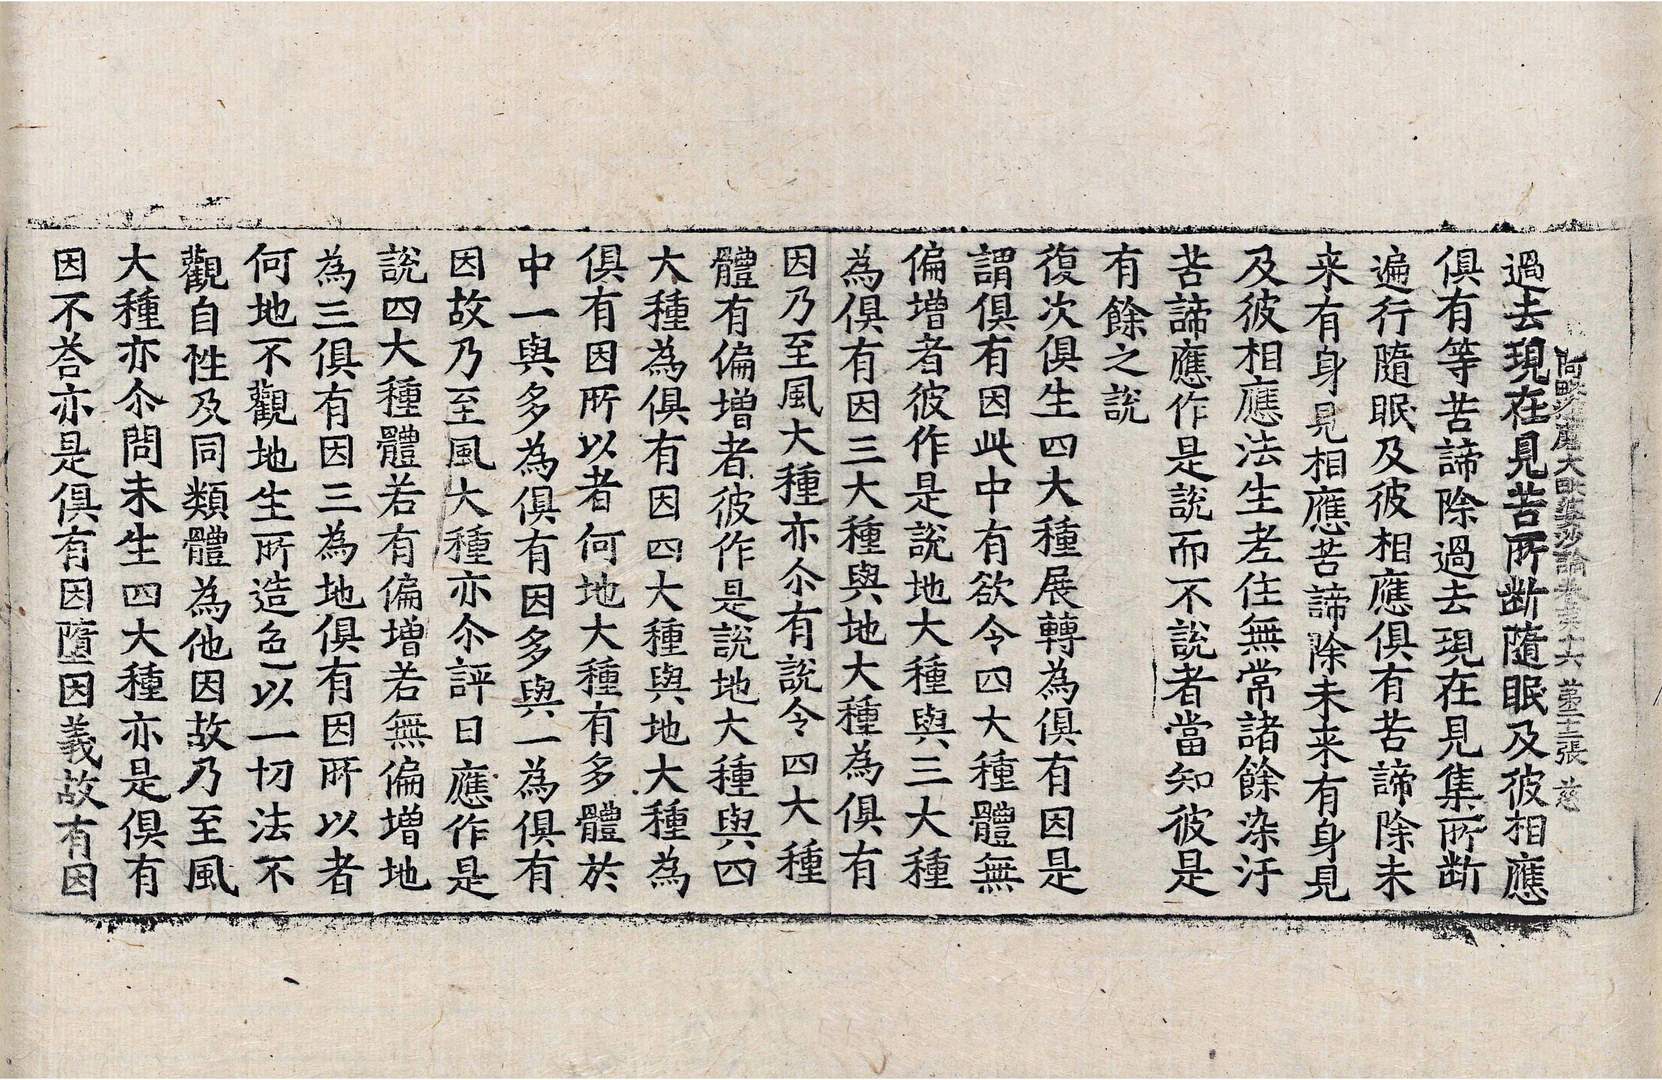 阿毗達磨大毗婆沙論卷第十六 苐十二張 慈
過去現在見苦所断隨眠及彼相應
俱有等苦諦除過去現在見集所断
遍行隨眠及彼相應俱有苦諦除未
来有身見相應苦諦除未来有身見
及彼相應法生老住無常諸餘染汙
苦諦應作是說而不說者當知彼是
有餘之說
復次俱生四大種展轉為俱有因是
謂俱有因此中有欲令四大種體無
偏增者彼作是說地大種與三大種
為俱有因三大種與地大種為俱有
因乃至風大種亦尒有說令四大種
體有偏增者彼作是說地大種與四
大種為俱有因四大種與地大種為
俱有因所以者何地大種有多體於
中一與多為俱有因多與一為俱有
因故乃至風大種亦尒評曰應作是
說四大種體若有偏增若無偏增地
為三俱有因三為地俱有因所以者
何地不觀地生所造色以一切法不
觀自性及同類體為他因故乃至風
大種亦尒問未生四大種亦是俱有
因不荅亦是俱有因墮因義故有因